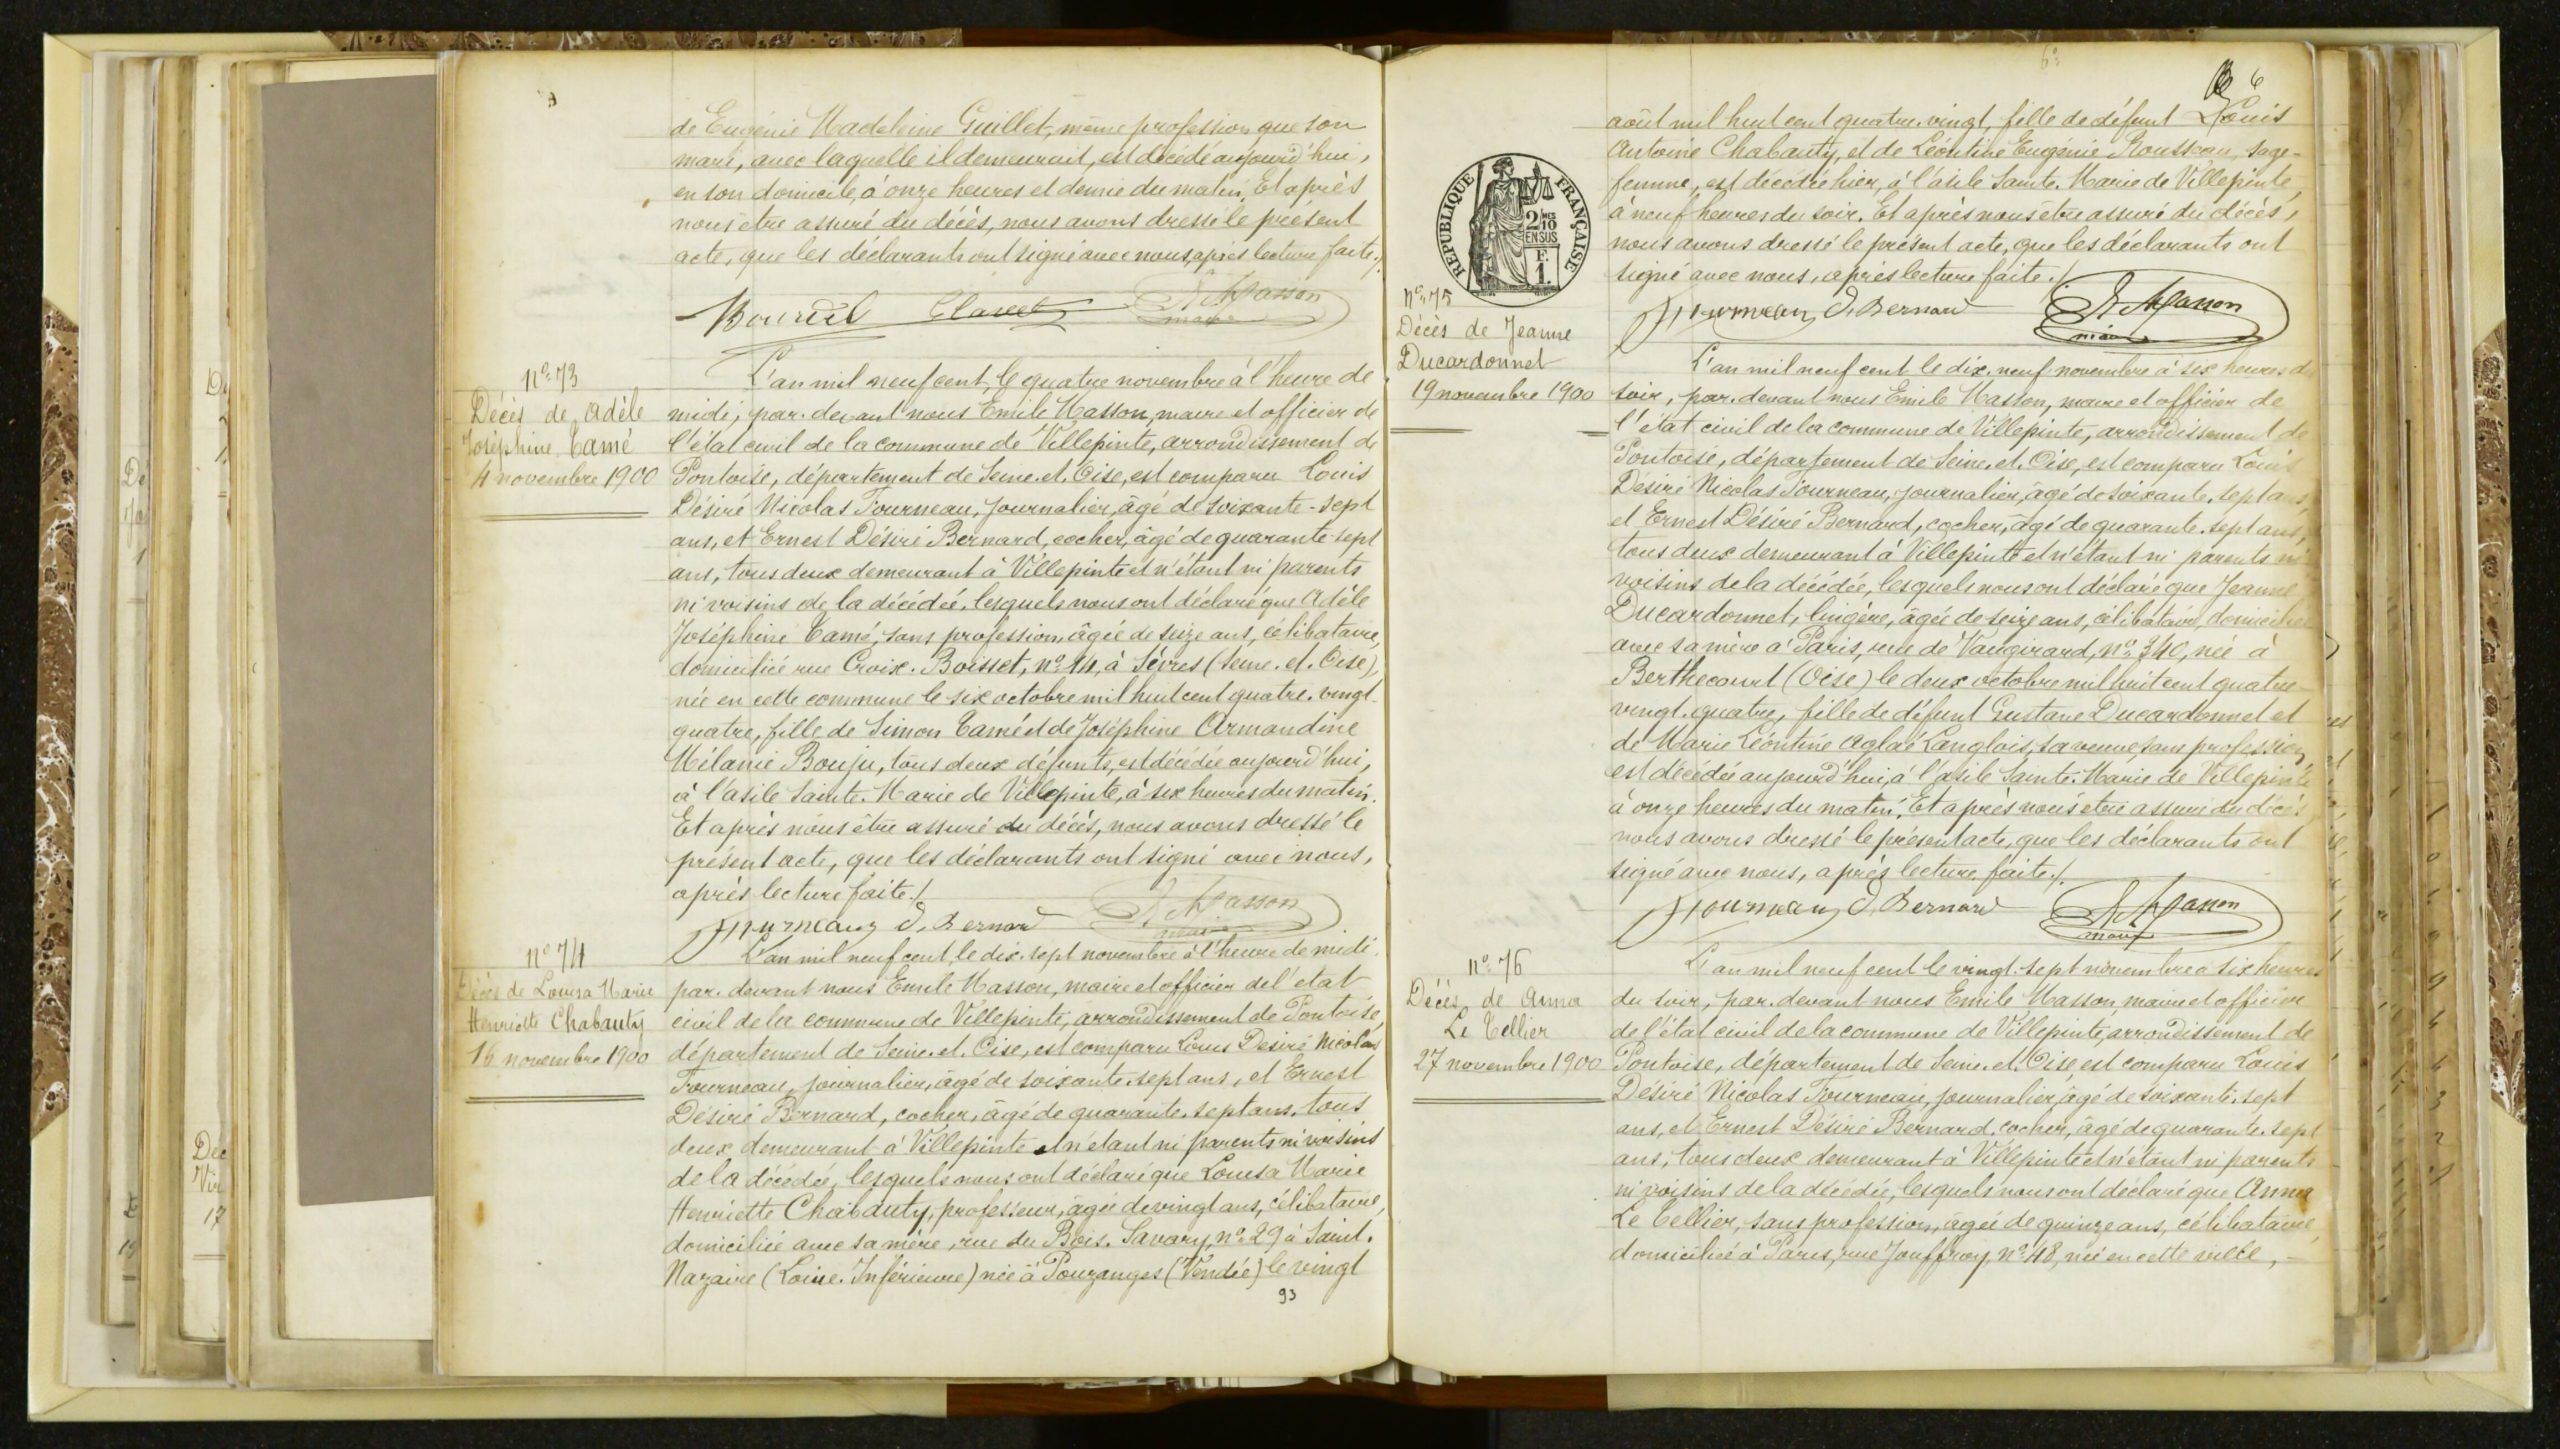 de Eugénie Madeleine Guillet, même profession que son
mari, avec laquelle il demeurait, est décédé aujourd'hui,
en son domicile, à onze heures et demie du matin. Et après
nous être assuré du décès, nous avons dressé le présent
acte, que les déclarants ont signé avec nous, après lecture faite./.
Clavel E. Masson
maire
N° 73
Décès de Adèle
Joséphine Tamé
4 novembre 1900
L'an mil neuf cent, le quatre novembre à l'heure de
midi, par-devant nous Emile Masson, maire et officier de
l'état civil de la commune de Villepinte, arrondissement de
Pontoise, département de Seine-et-Oise, est comparu Louis
Désiré Nicolas Fourneau, journalier, âgé de soixante-sept
ans, et Ernest Désiré Bernard, cocher, âgé de quarante-sept
ans, tous deux demeurant à Villepinte et n'étant ni parents
ni voisins de la décédée, lesquels nous ont déclaré que Adèle
Joséphine Tamé, sans profession, âgée de seize ans, célibataire,
domiciliée rue Croix-Boisset, n° 14, à Sèvres (Seine-et-Oise),
née en cette commune le six octobre mil huit cent quatre-vingt-
quatre, fille de Simon Tamé et de Joséphine Armandine
Mélanie Bouju, tous deux défunts, est décédée aujourd'hui,
à l'asile Sainte-Marie de Villepinte, à six heures du matin.
Et après nous être assuré du décès, nous avons dressé le
présent acte, que les déclarants ont signé avec nous,
après lecture faite./.
Fourneau D. Bernard E. Masson
maire
N° 74
Décès de Louisa Marie
Henriette Chabauty
16 novembre 1900
L'an mil neuf cent, le dix-sept novembre à l'heure de midi,
par-devant nous Emile Masson, maire et officier de l'état
civil de la commune de Villepinte, arrondissement de Pontoise,
département de Seine-et-Oise, est comparu Louis Désiré Nicolas
Fourneau, journalier, âgé de soixante-sept ans, et Ernest
Désiré Bernard, cocher, âgé de quarante-sept ans, tous
deux demeurant à Villepinte et n'étant ni parents ni voisins
de la décédée, lesquels nous ont déclaré que Louisa Marie
Henriette Chabauty, professeur, âgée de vingt ans, célibataire,
domiciliée avec sa mère, rue du Bois-Savary, n° 29 à Saint-
Nazaire (Loire-Inférieure) née à Pouzauges (Vendée) le vingt
93
6
août mil huit cent quatre-vingt, fille de défunt Louis
Antoine Chabauty, et de Léontine Eugénie Rousseau, sage-
femme, est décédée hier, à l'asile Sainte-Marie de Villepinte,
à neuf heures du soir. Et après nous être assuré du décès,
nous avons dressé le présent acte, que les déclarants ont
signé avec nous, après lecture faite./.
Fourneau D. Bernard E. Masson
maire
RÉPUBLIQUE FRANÇAISE
2/10MES
EN SUS
F.
1.
N° 75
Décès de Jeanne
Ducardonnet
19 novembre 1900
L'an mil neuf cent le dix-neuf novembre à six heures du
soir, par-devant nous Emile Masson, maire et officier de
l'état civil de la commune de Villepinte, arrondissement de
Pontoise, département de Seine-et-Oise, est comparu Louis
Désiré Nicolas Fourneau, journalier, âgé de soixante-sept ans,
et Ernest Désiré Bernard, cocher, âgé de quarante-sept ans,
tous deux demeurant à Villepinte et n'étant ni parents ni
voisins de la décédée, lesquels nous ont déclaré que Jeanne
Ducardonnet, lingère, âgée de seize ans, célibataire, domiciliée
avec sa mère à Paris, rue de Vaugirard, n° 340, née à
Berthecourt (Oise) le deux octobre mil huit cent quatre-
vingt-quatre, fille de défunt Gustave Ducardonnet et
de Marie Léontine Aglaé Langlois, sa veuve, sans profession,
est décédée aujourd'hui, à l'asile Sainte-Marie de Villepinte
à onze heures du matin. Et après nous être assuré du décès
nous avons dressé le présent acte, que les déclarants ont
signé avec nous, après lecture faite./.
Fourneau D. Bernard E. Masson
maire
N° 76
Décès de Anna
Le Tellier
27 novembre 1900
L'an mil neuf cent le vingt-sept novembre à six heures
du soir, par-devant nous Emile Masson, maire et officier
de l'état civil de la commune de Villepinte, arrondissement de
Pontoise, département de Seine-et-Oise, est comparu Louis
Désiré Nicolas Fourneau, journalier, âgé de soixante-sept
ans, et Ernest Désiré Bernard, cocher, âgé de quarante-sept
ans, tous deux demeurant à Villepinte et n'étant ni parents
ni voisins de la décédée, lesquels nous ont déclaré que Anna
Le Tellier, sans profession, âgée de quinze ans, célibataire,
domiciliée à Paris, rue Jouffroy, n° 48, née en cette ville,